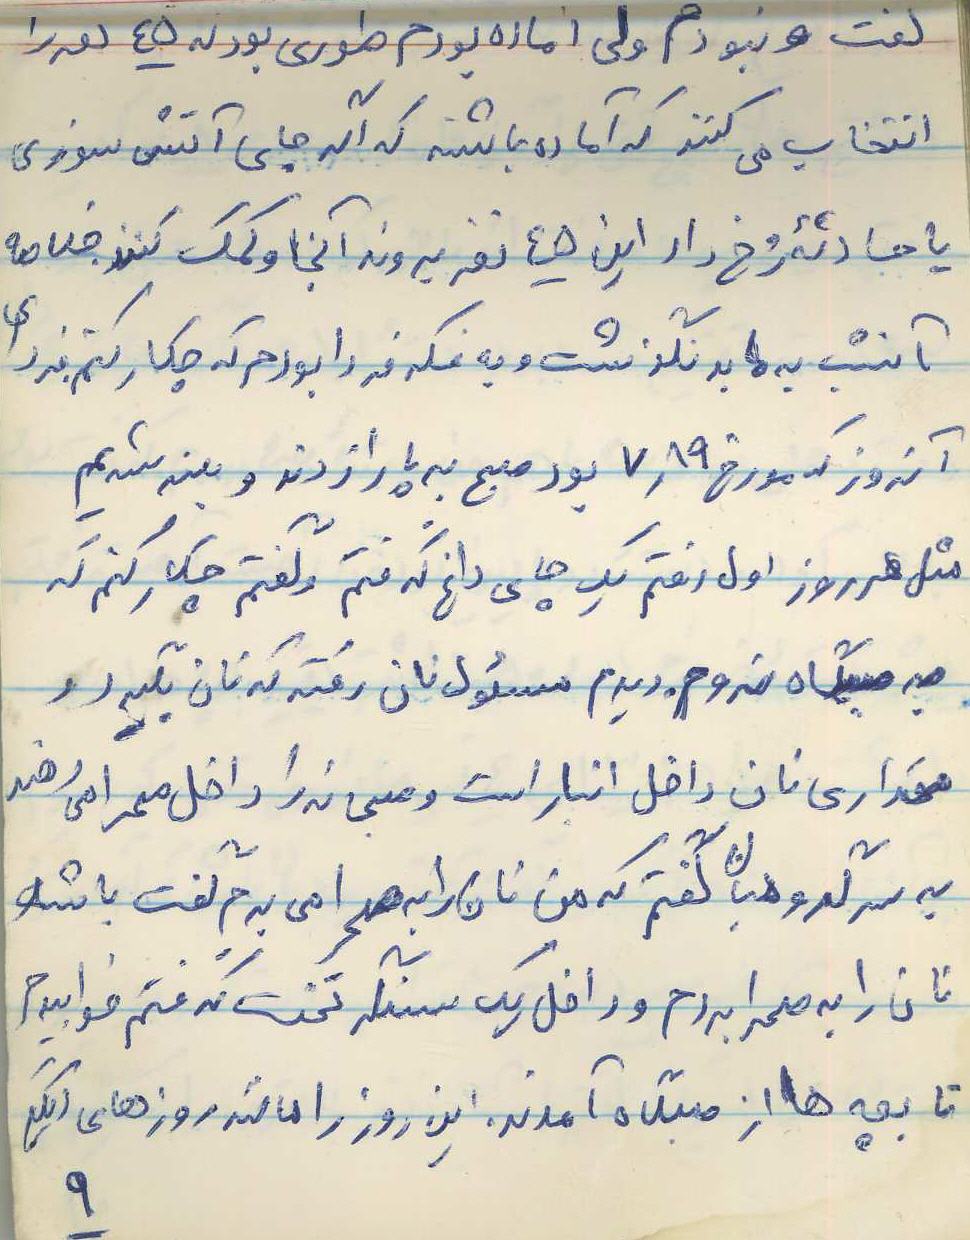 گفت و نبودم ولی آماده بودم طوری بود که ٤٥ نفر را
انتخاب می کنند که آماده باشند که اگر جای آتش سوزی
یا حادثهٔ رخ داد این ٤٥ نفر بروند آنجا و کمک کنند خلاصه
آنشب به ما بد نگذشت و به فکر فردا بودم که چکار کنم فردای
آنروز که مورخ ۷٫۸۹ بود صبح به پا زدند و بلند شدیم
مثل هر روز اول رفتم یک چای داغ گرفتم و گفتم چکار کنم که
به صبگاه نروم. دیدم مسئول نان رفته که نان بگیرد و
مقداری نان داخل انبار است و صبحانه را داخل صحرا می
به سرگروهبان گفتم که من نان را به صحرا می برم گفت باشه
نان را به صحرا بردم و داخل یک سنگر تخت گرفتم خوابیدم
تا بچه ها از صبگاه آمدند. این روز را مانند روزهای دیگر
۹